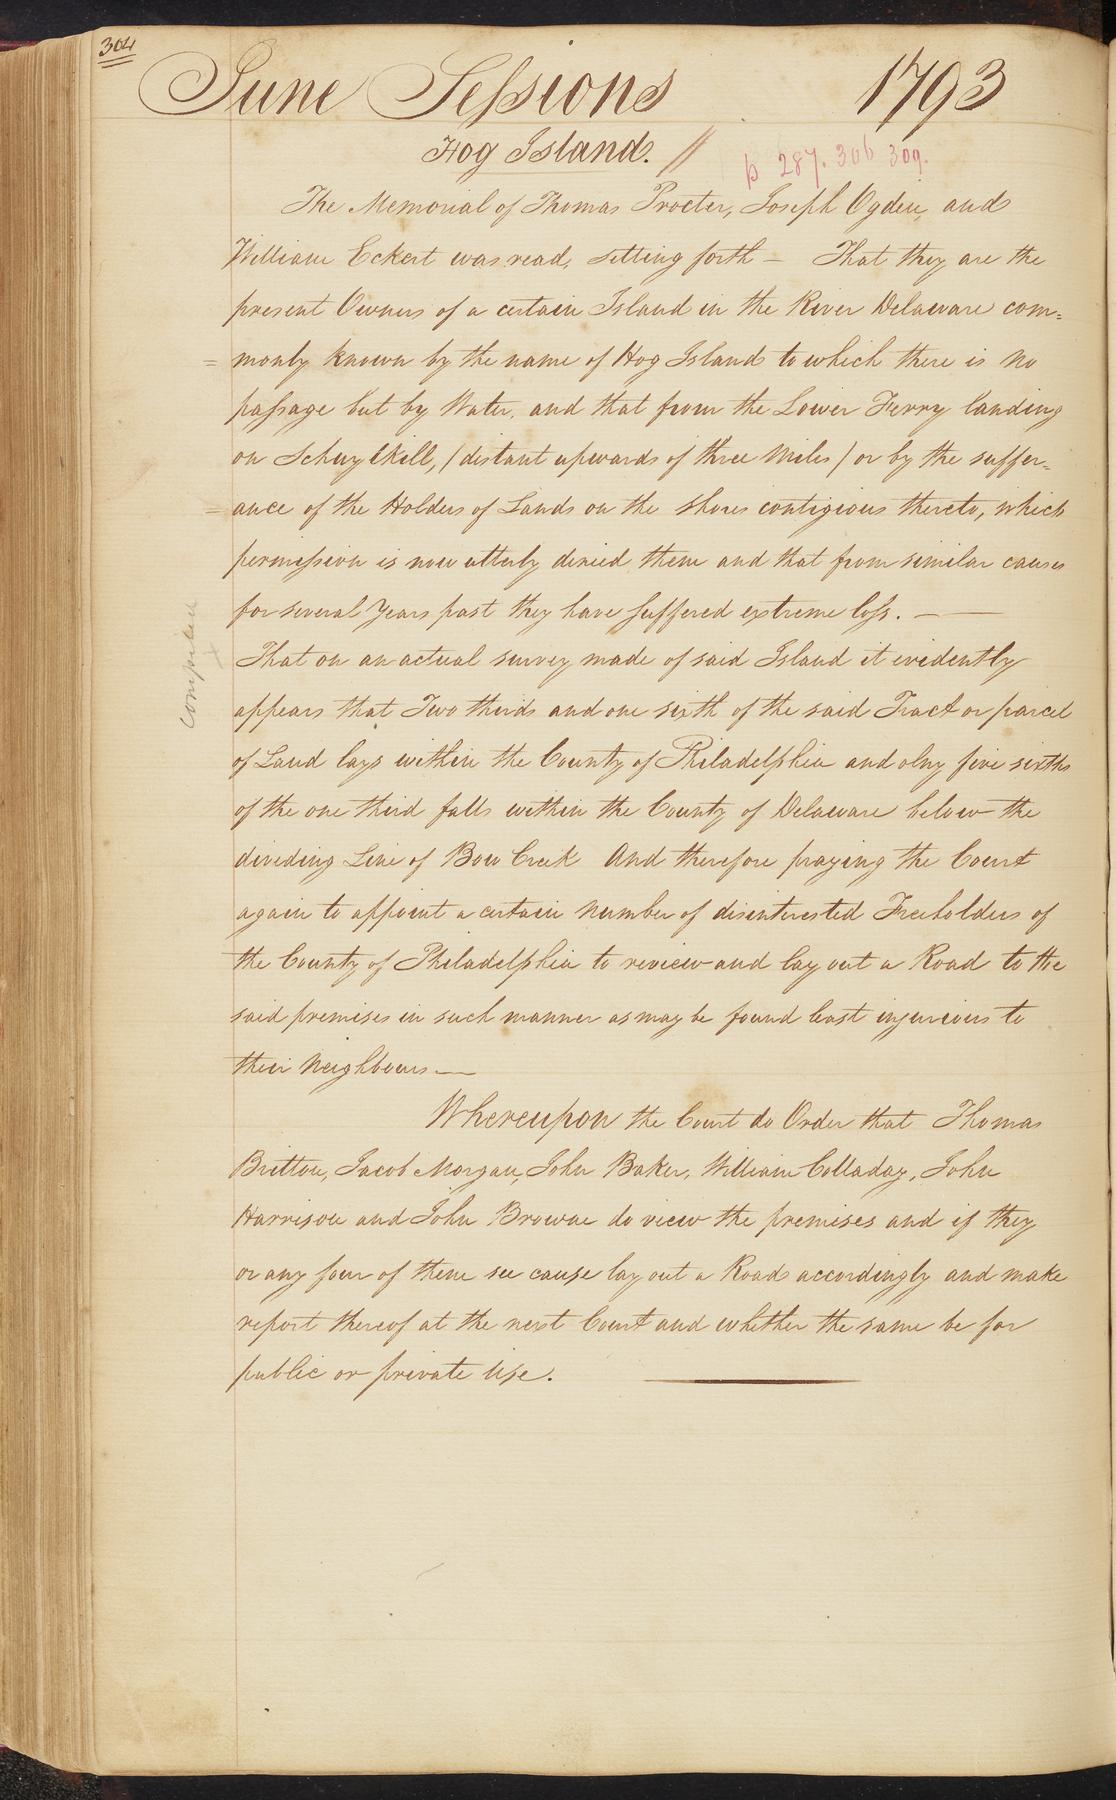 304
June Sessions 1793
Hog Island. //
p 287. 306 309.
The Memorial of Thomas Procter, Joseph Ogden, and
William Eckert was read, setting forth — That they are the
present Owners of a certain Island in the River Delaware com=
=monly known by the name of Hog Island to which there is no
passage but by Water, and that from the Lower Ferry landing
on Schuylkill, (distant upwards of three Miles) or by the suffer=
=ance of the Holders of Lands on the Shores contigious thereto, which
permission is now utterly denied them and that from similar causes
for several Years past they have suffered extreme loss. —
That on an actual survey made of said Island it evidently
appears that Two thirds and one sixth of the said Tract or parcel
of Land lays within the County of Philadelphia and olny five sixths
of the one third falls within the County of Delaware below the
dividing Line of Bow Creek And therefore praying the Court
again to appoint a certain Number of disinterested Freeholders of
the County of Philadelphia to review and lay out a Road to the
said premises in such manner as may be found least injurious to
their Neighbours —
Whereupon the Court do Order that Thomas
Britton, Jacob Morgan, John Baker, William Colladay, John
Harrison and John Browne do view the premises and if they
or any four of them see cause lay out a Road accordingly and make
report thereof at the next Court and whether the same be for
public or private Use.
Compared